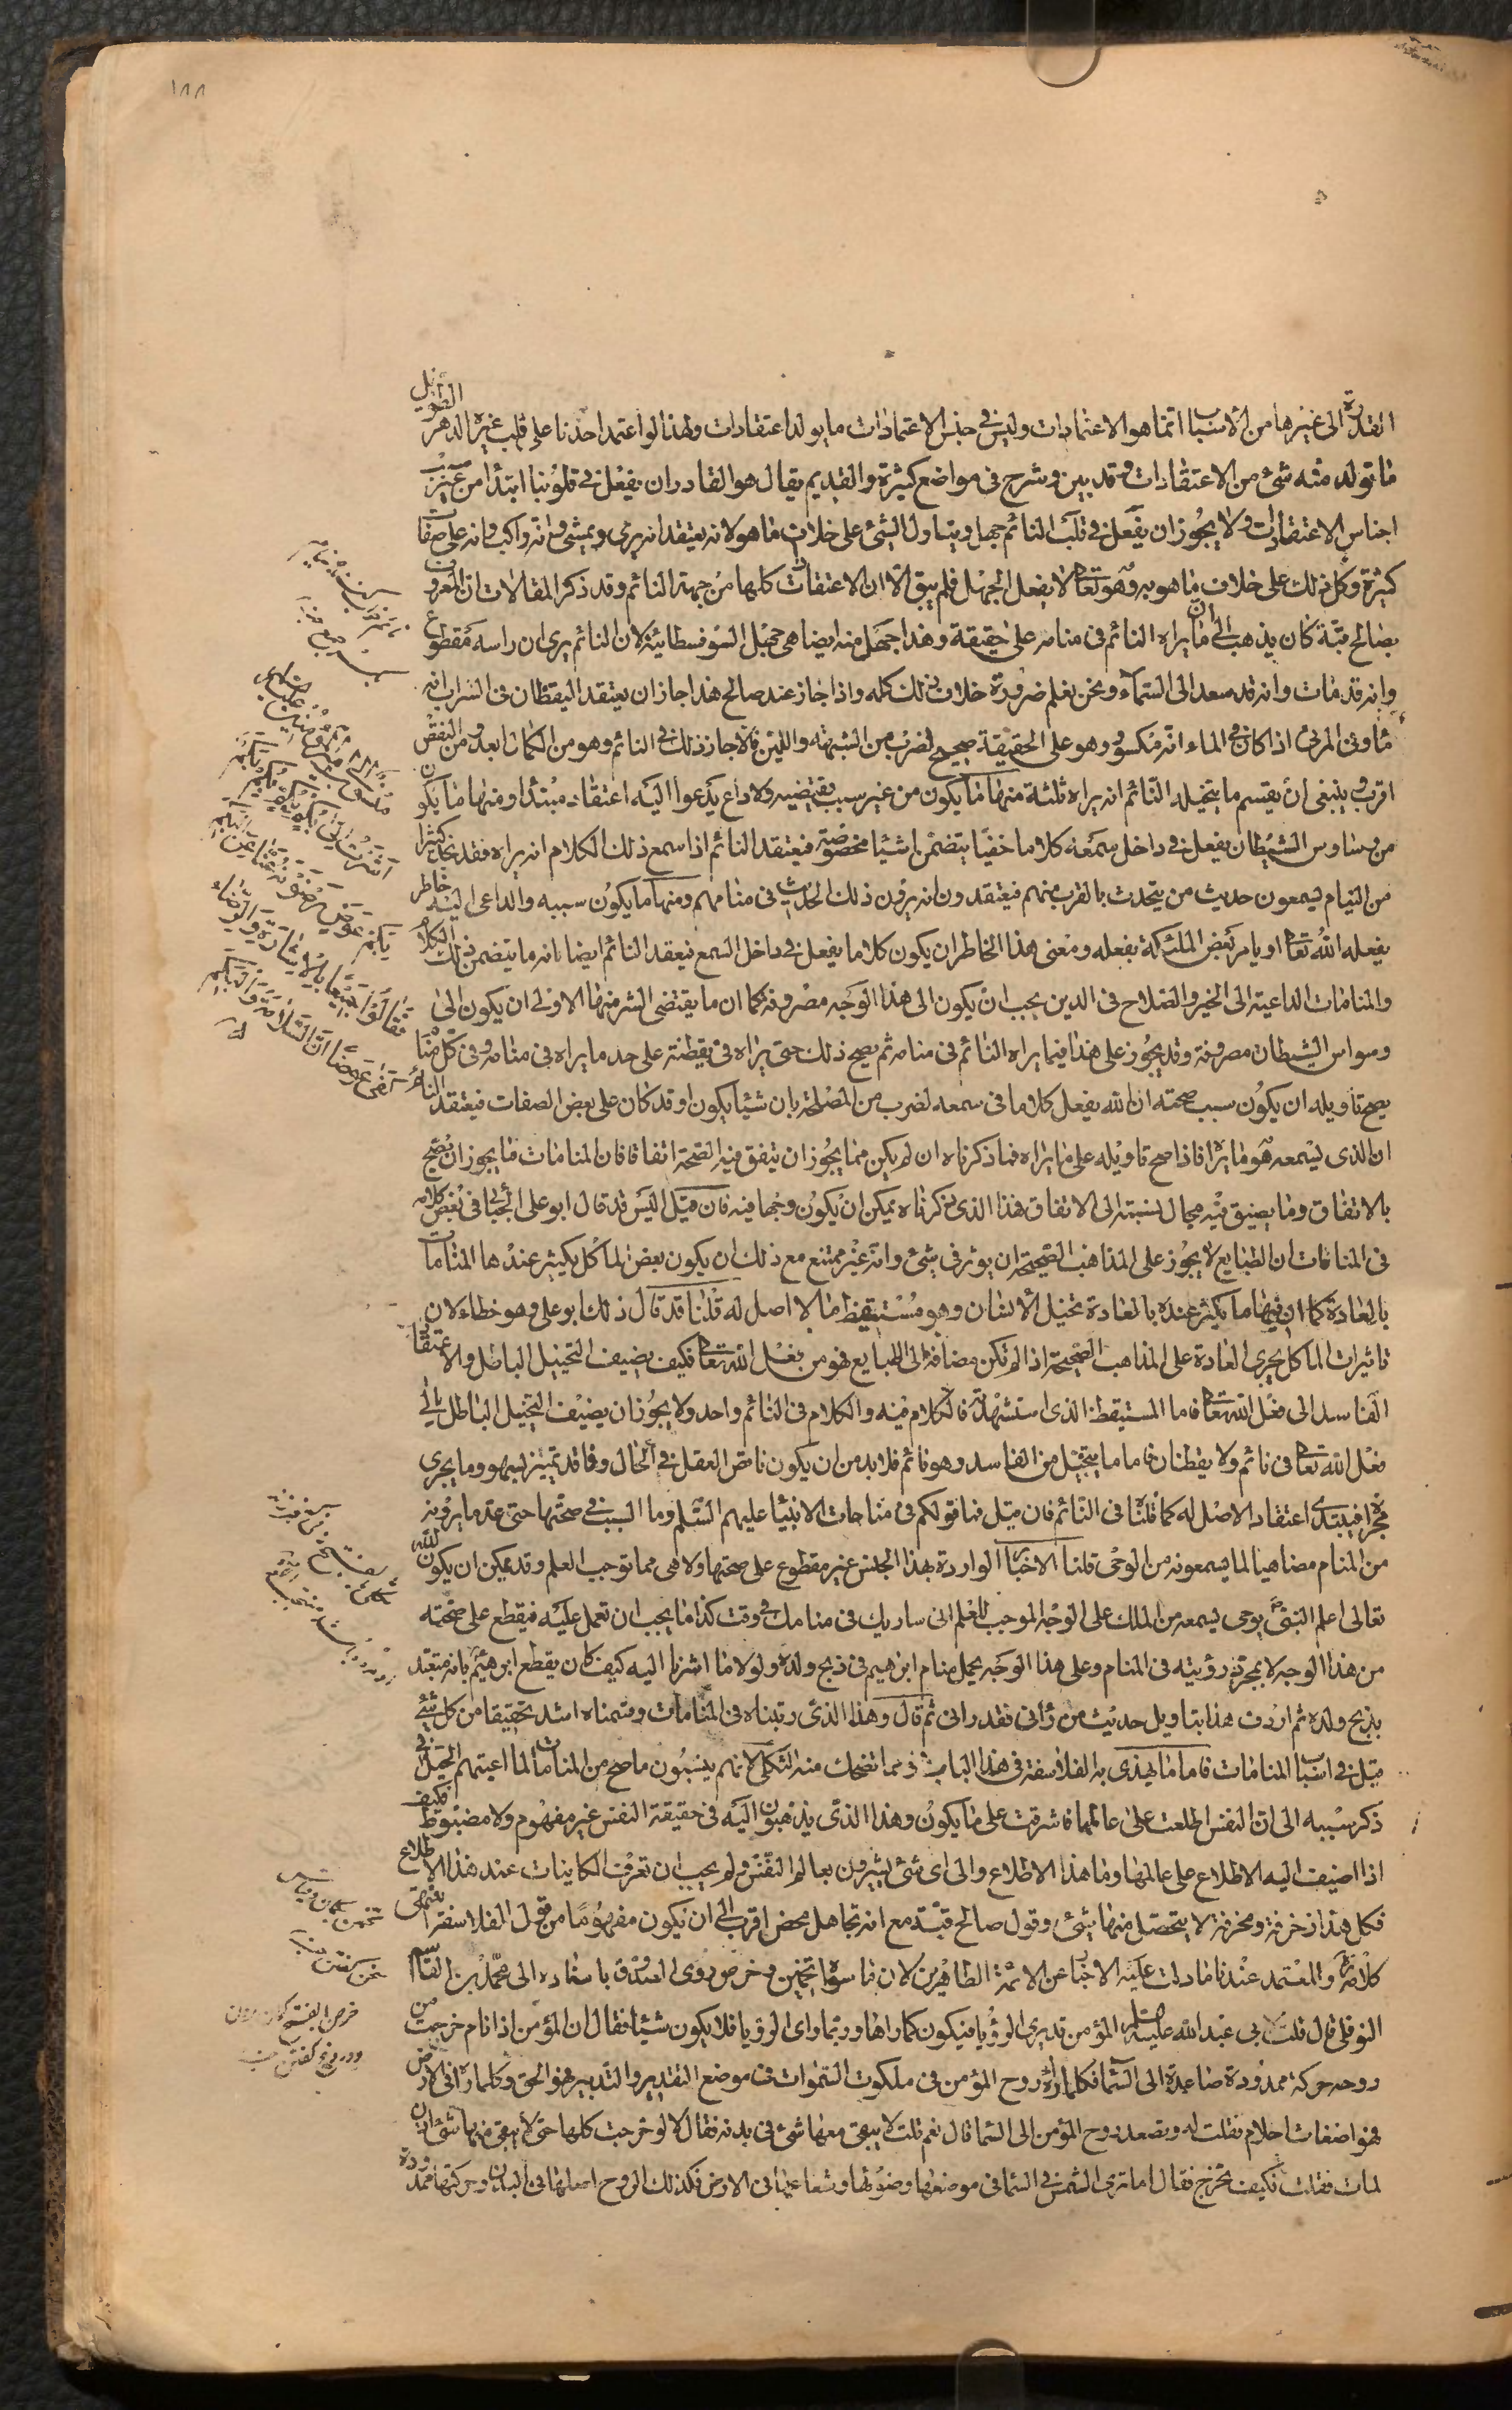 ١٨٨
القدرة الى غيرها من الأسباب انما هو الاعتمادات وليس في جنس الاعتمادات ما يولد اعتقادات ولهذا لو اعتمد احدنا على قلب غيره الدهر الطويل
ما تولد منه شئ من الاعتقادات وقد بين وشرح في مواضع كثيرة والقديم تعالى هو القادر ان يفعل في قلوبنا ابتداً من غير سبب
اجناس الاعتقادات ولا يجوز ان يفعل في قلب النائم جهلا ويتناول الشئ على خلاف ما هو لانه يعتقد انه يرى ويمشي وانه راكب وانه على صفات
كثيرة وكل ذلك على خلاف ما هو به وهو تعالى لا يفعل الجهل فلم يبق الا ان الاعتقادات كلها من جهة النائم وقد ذكر المقالات ان المعروف
بصالح قبة كان يذهب الى ان ما يراه النائم في منامه على حقيقة وهذا جهل منه ايضاهي جهل السوفسطائية لان النائم يرى ان راسه مقطوع
وانه قد مات وانه قد صعد الى السمآء ونحن نعلم ضرورة خلاف ذلك كله واذا جاز عند صالح هذا جاز ان يعتقد اليقظان في السراب انه
ماء وفي المردي اذا كان في الماء انه مكسور وهو على الحقيقة صحيح لضرب من الشبهة واللبس فالا جاز ذلك في النائم وهو من الكمال ابعد ومن النقص
اقرب وينبغي ان يقسم ما يتخيله النائم انه يراه ثلثة منها ما يكون من غير سبب يقتضيه ولا داع يدعوا اليه اعتقاد مبتدأ ومنها ما يكون
من وساوس الشيطان يفعل في داخل سمعه كلاما خفيا يتضمن اشياً مخصوصة فيعتقد النائم اذا سمع ذلك الكلام انه يراه فقد نجد كثيرا
من النيام يسمعون حديث من يتحدث بالقرب منهم فيعتقدون انهم يرون ذلك الحديث في منامهم ومنها ما يكون سببه والداعي اليه خاطر
يفعله الله تعالى او يامر بعض الملئكة بفعله ومعنى هذا الخاطر ان يكون كلاما يفعل في داخل السمع فيعتقد النائم ايضا بانه ما يتضمن ذلك الكلام
والمنامات الداعية الى الخير والصلاح في الدين يجب ان يكون الى هذا الوجه مصروفة كما ان ما يقتضي الشر منها الاولى ان يكون الى
وسواس الشيطان مصروفة وقد يجوز على هذا فيما يراه النائم في منامه ثم يصح ذلك حتى يراه في يقظته على حد ما يراه في منامه وفي كل منام
يصح تاويله ان يكون سبب صحته ان الله يفعل كلاما في سمعه لضرب من المصلحة بان شيئا يكون او قد كان على بعض الصفات فيعتقد النائم
ان الذي يسمعه هو ما يراه فاذا صح تاويله على ما يراه فما ذكرناه ان لم يكن مما يجوز ان يتفق فيه الصحة اتفاقا فان المنامات ما يجوز ان يصح
بالاتفاق وما يضيق فيه مجال نسبته الى الاتفاق فهذا الذي ذكرناه يمكن ان يكون وجها فيه فان قيل اليس قد قال ابو على الجبائي في بعض كلامه
في المنامات ان الطبايع لا يجوز على المذاهب الصحيحة ان يوثر في شئ وانه غير ممتنع مع ذلك ان يكون بعض المآكل يكثر عندها المنامات
بالعادة كما ان فيها ما يكثر عنده بالعادة تخيل الأنسان وهو مستيقظ ما لا اصل له قلنا قد قال ذلك ابو على وهو خطاء لان
تاثيرات الماكل بمجرى العادة على المذاهب الصحيحة اذا لم تكن مضافة الى الطبايع فهو من فعل الله تعالى فكيف يضيف التخييل الباطل والاعتقاد
الفاسد الى فعل الله تعالى فاما المستيقظ الذي استشهد به فالكلام فيه والكلام في النائم واحد ولا يجوز ان يضيف التخييل الباطل الى
فعل الله تعالى في نائم ولا يقظان فاما ما يتخيل من الفاسد وهو نائم فلا بد من ان يكون ناقص العقل في الحال وفاقد تمييز بسهو وما يجري
مجراه فيبتدى اعتقاد الاصل له كما قلنا في النائم فان قيل فما قولكم في منامات الانبيا عليهم السلم وما السبب في صحتها حتى عد ما يرونه
من المنام مضاهيا لما يسمعونه من الوحى قلنا الاخبار الواردة بهذا الجنس غير مقطوع على صحتها ولا هي مما توجب العلم وقد يمكن ان يكون الله
تعالى اعلم النبي ص بوحى يسمعه من الملك على الوجه الموجب للعلم انى ساريك في منامك في وقت كذا ما يجب ان تعمل عليه فيقطع على صحته
من هذا الوجه لا بمجرد رؤيته في المنام وعلى هذا الوجه يحمل منام ابرهيم في ذبح ولده ولولا ما اشرنا اليه كيف كان يقطع ابرهيم بانه متعبد
بذبح ولده ثم اردف هذا بتاويل حديث من رآنى فقد رانى ثم قال وهذا الذى رتبناه في المنامات وقسمناه اشد تحقيقا من كل شئ
قيل في اسباب المنامات فاما ما يهذي به الفلاسفة في هذا الباب فهو مما تضحك منه الثكلى لانهم ينسبون ما صح من المنامات لما اعيتهم الحيل في
ذكر سببه الى ان النفس اطلعت على عالمها فاشرفت على ما يكون وهذا الذى يذهبون اليه في حقيقة النفس غير مفهوم ولا مضبوط فكيف
اذا اضيف اليه الاطلاع على عالمها وما هذا الاطلاع والى اى شئ يشيرون بعالم النفس ولم يجب ان تعرف الكاينات عند هذا الاطلاع
فكل هذا زخرفة ومخرفة لا يتحصل منها شئ وقول صالح قبة مع انه تجاهل محض اقرب الى ان يكون مفهوما من قول الفلاسفة انتهى
كلامه والمعتمد عندنا ما دلت عليه الاخبار عن الائمة الطاهرين لان ما سواه تخمين وخرص روى الصدوق باسناده الى محمد بن القاسم
النوفلي قال قلت لابي عبد الله عليه السلم المؤمن قد يرى الرؤيا فيكون كما راها وربما راى الرؤيا فلا يكون شيئا فقال ان المؤمن اذا نام خرجت من
روحه حركة ممدودة صاعدة الى السما فكلما رآه روح المؤمن في ملكوت السموات في موضع التقدير والتدبير فهو الحق وكلما رآه في الارض
فهو اضغاث احلام فقلت له وتصعد روح المؤمن الى السما قال نعم قلت لا يبقى معها شئ في بدنه فقال لا لو خرجت كلها حتى لا يبقى منها شئ اذن
لمات فقلت فكيف تخرج فقال اما ترى الشمس في السما في موضعها وضوئها وشعاعها في الارض فكذلك الروح اصلها في البدن وحركتها ممدودة